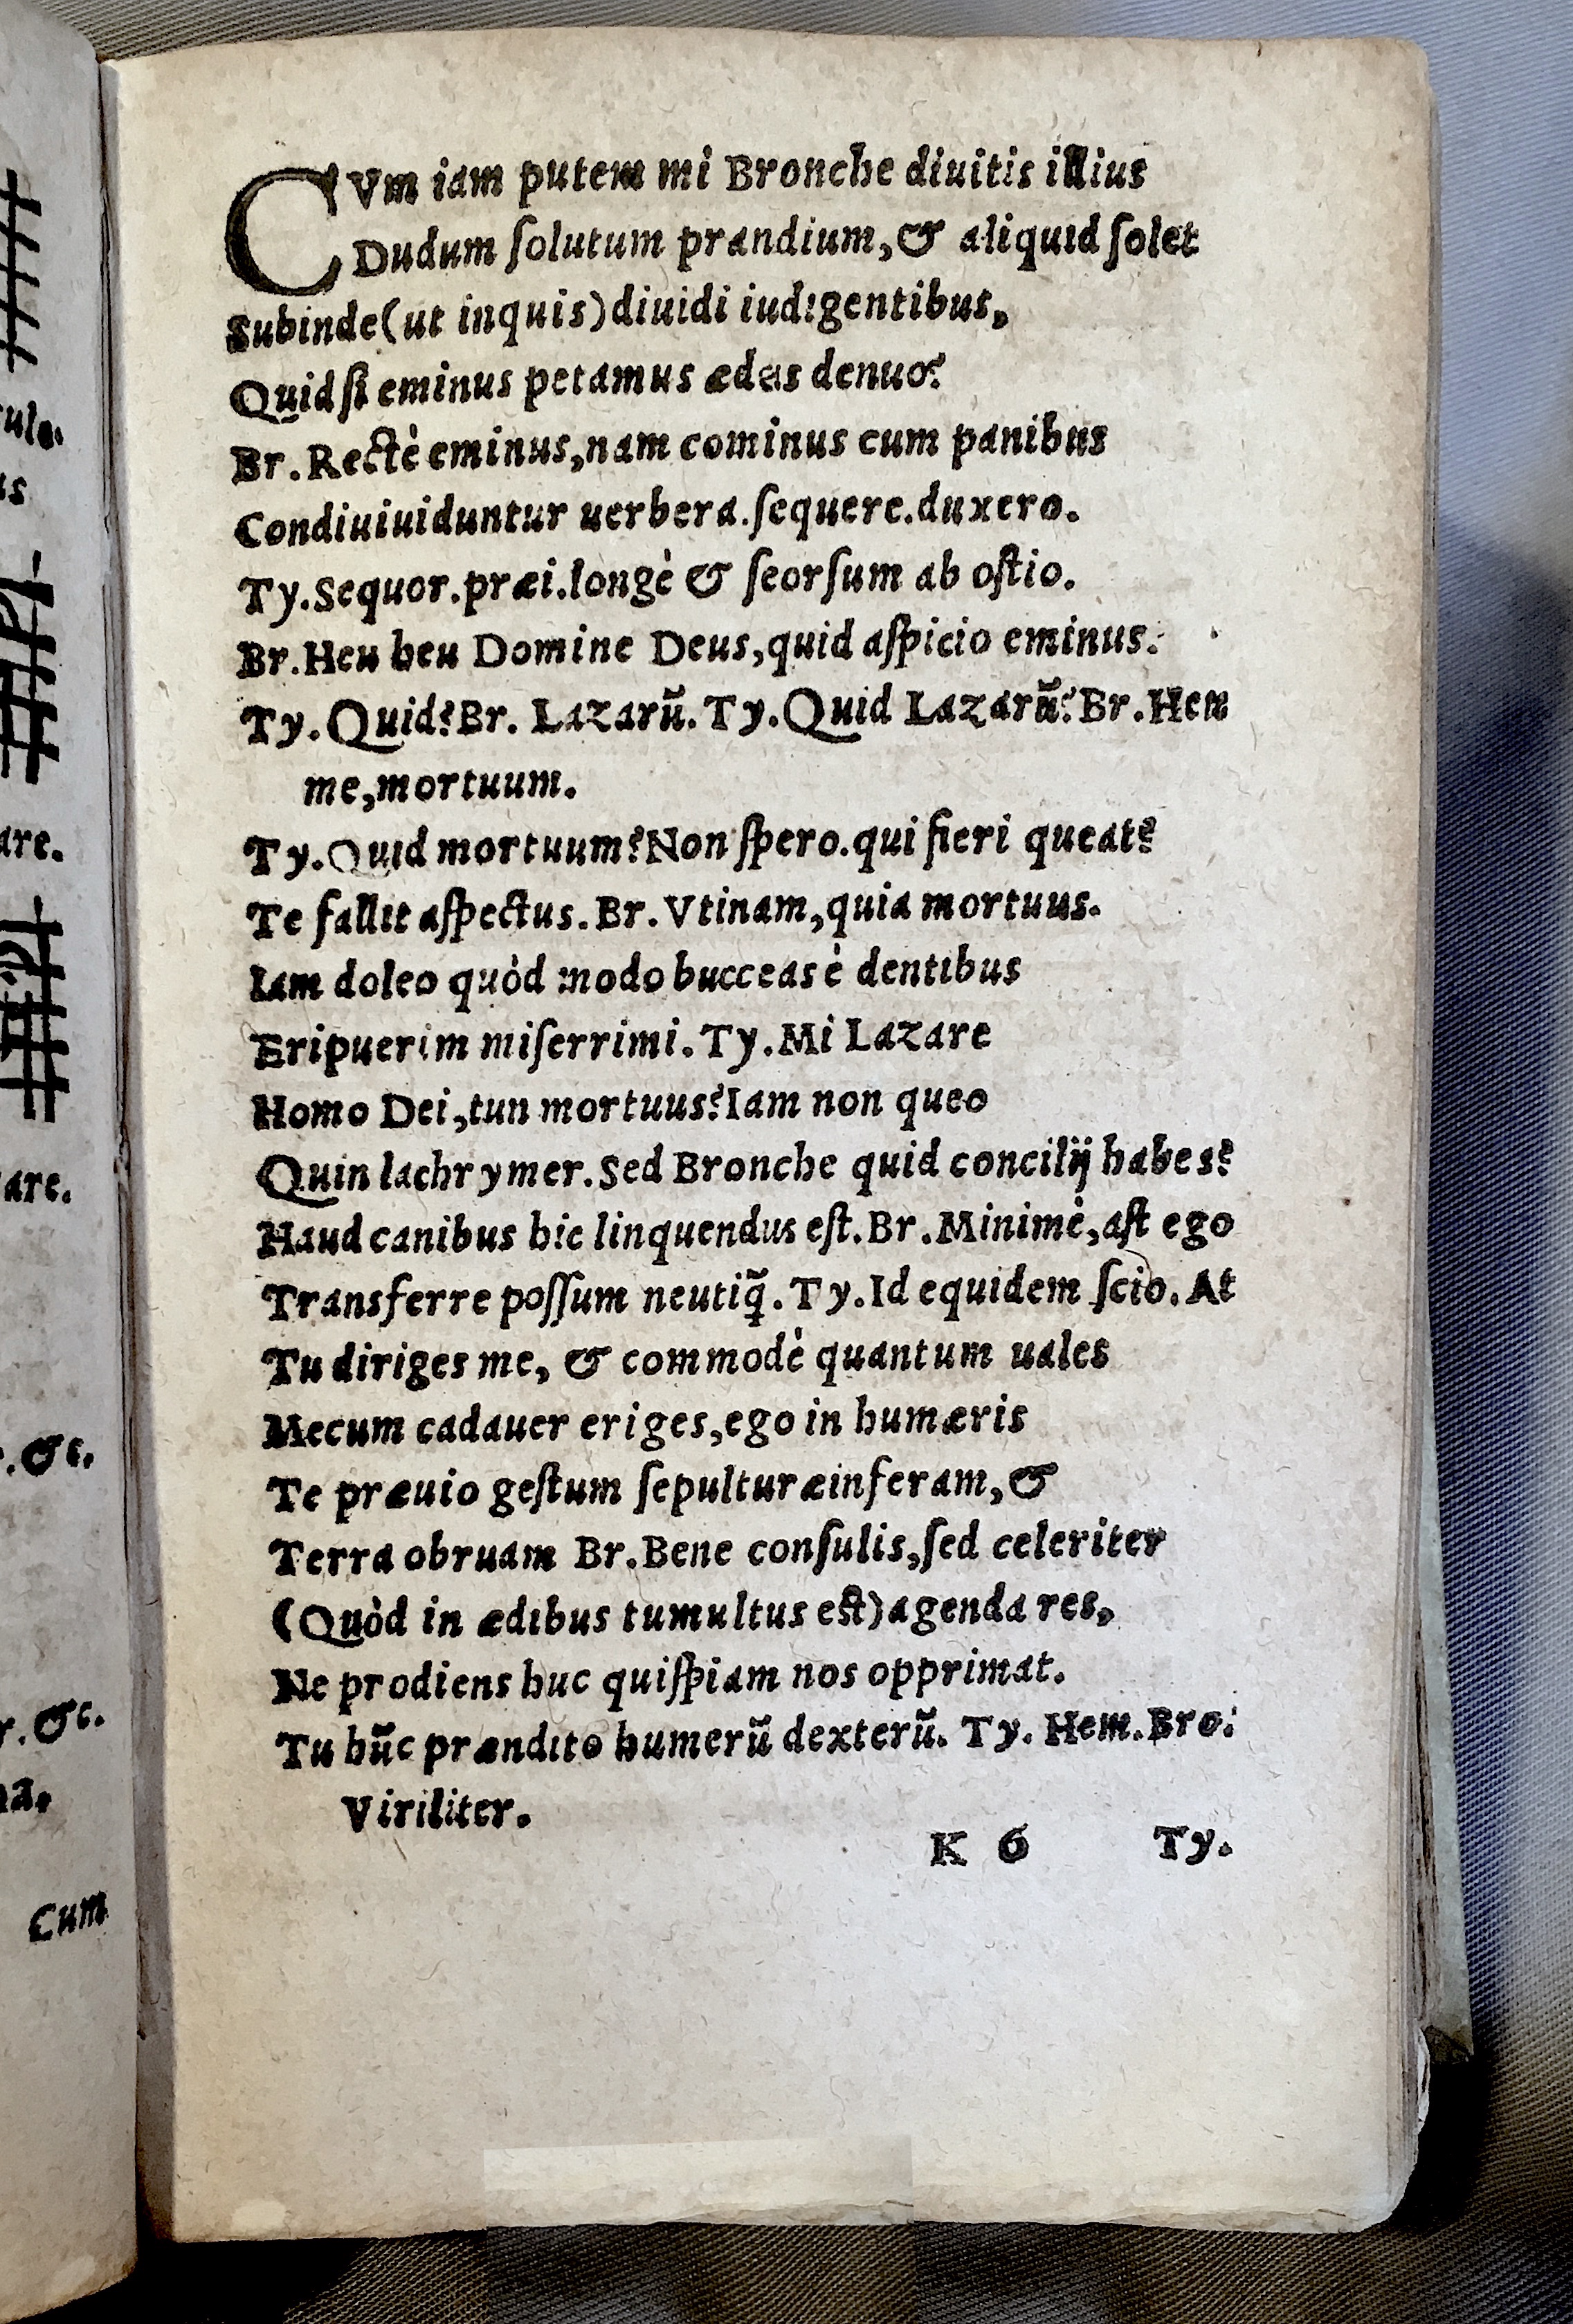 ule.
us
are.
are.
r.&c.
r.&c.
na,
Cum
CVm iam putem mi Bronche diuitis illius
Dudum ſolutum prandium,& aliquid ſolet
Subinde(ut inquis)diuidi iudigentibus,
Quid ſi eminus petamus ædes denuo?
Br.Rectè eminus,nam cominus cum panibus
Condiuiuiduntur uerbera.ſequere.duxero.
Ty.Sequor.præi.longè & ſeorſum ab oſtio.
Br.Heu heu Domine Deus,quid aſpicio eminus.
Ty.Quid?Br. Lazarũ.Ty.Quid Lazarũ?Br.Heu
me,mortuum.
Ty.Quid mortuum?Non ſpero.qui fieri queat?
Te fallit aſpectus.Br.Vtinam,quia mortuus.
Iam doleo quòd modo bucceas è dentibus
Eripuerim miſerrimi.Ty.Mi Lazare
Homo Dei,tun mortuus?Iam non queo
Quin lachrymer.Sed Bronche quid concilij habes?
Haud canibus hic linquendus eſt.Br.Minimè,aſt ego
Transferre poſſum neutiq̃.Ty.Id equidem ſcio.At
Tu diriges me, & commodè quantum uales
Mecum cadauer eriges,ego in humæris
Te præuio geſtum ſepulturæ inferam,&
Terra obruam Br.Bene conſulis,ſed celeriter
(Quòd in ædibus tumultus eſt)agenda res,
Ne prodiens huc quiſpiam nos opprimat.
Tu hũc prændito humerũ dexterũ. Ty. Hem.Bro.
Viriliter.
K 6 Ty.